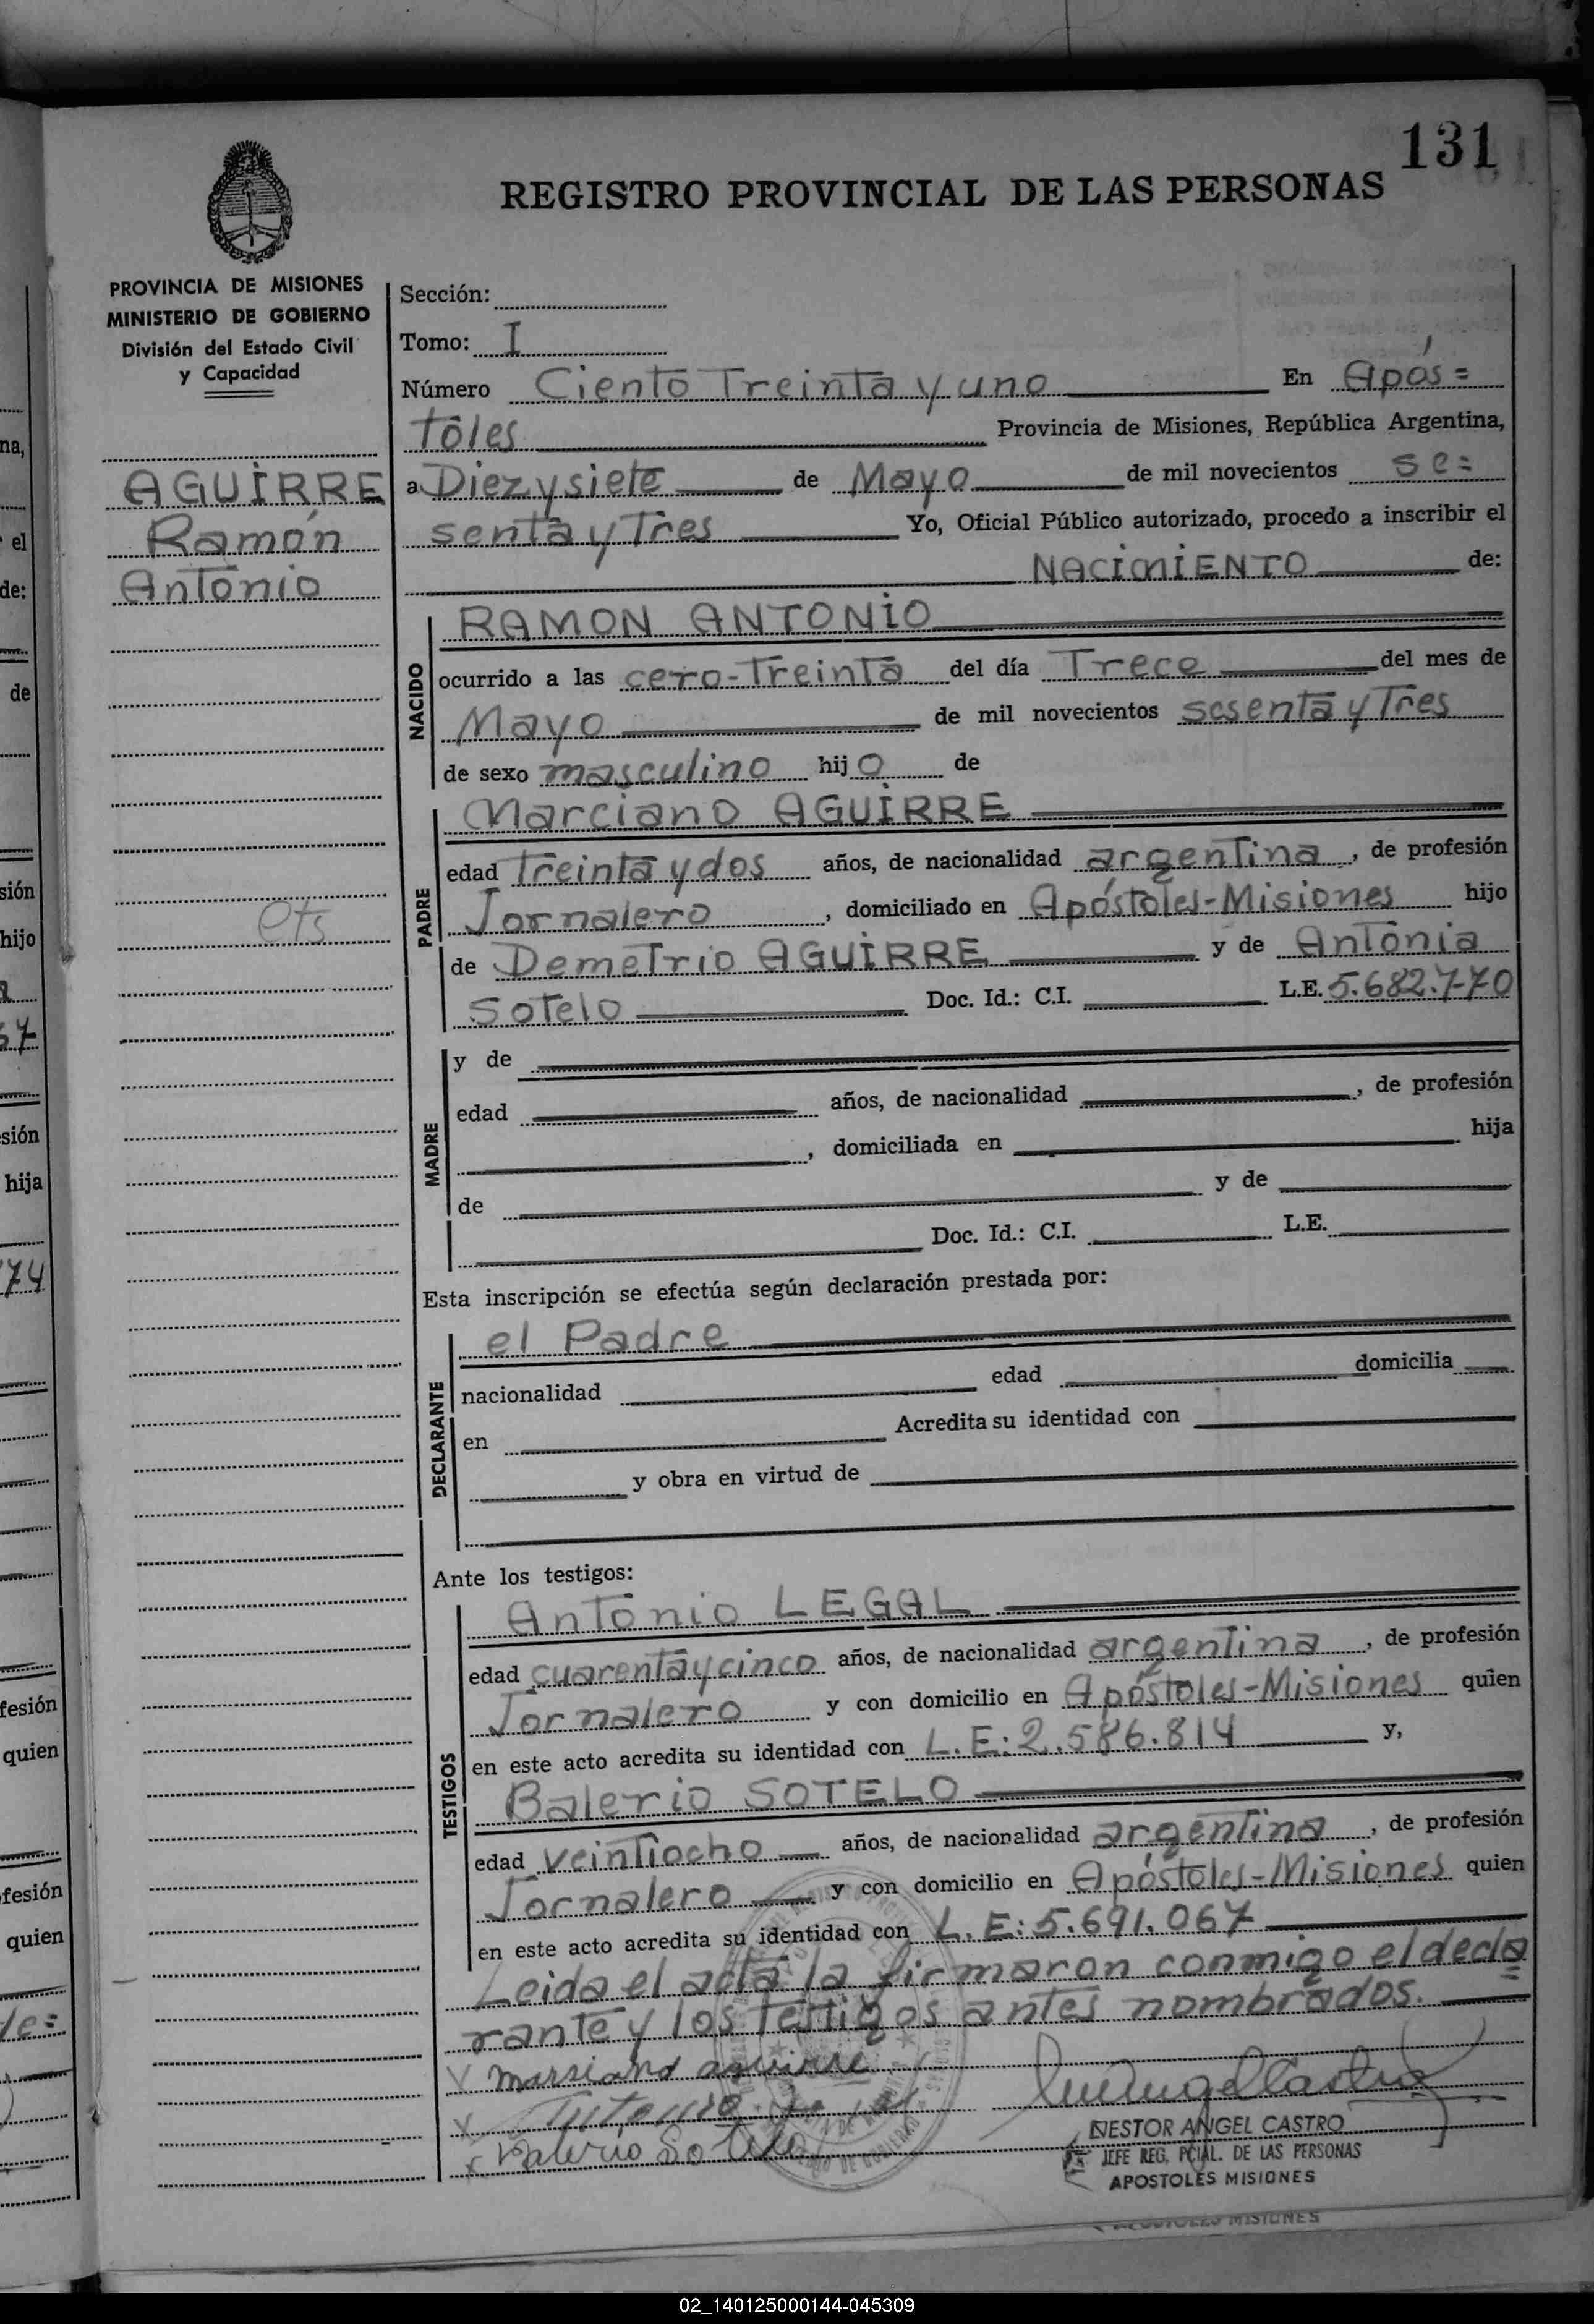 131
REGISTRO PROVINCIAL DE LAS PERSONAS
PROVINCIA DE MISIONES
MINISTERIO DE GOBIERNO
División del Estado Civil
y Capacidad
AGUIRRE
Ramón
Antonio
ets
Sección:
Tomo: I
Número Ciento Treinta y uno En Após=
toles Provincia de Misiones, República Argentina,
a Diez y siete de Mayo de mil novecientos se=
senta y Tres Yo, Oficial Público autorizado, procedo a inscribir el
NACIMIENTO de:
NACIDO
RAMON ANTONIO
ocurrido a las cero-Treinta del día Trece del mes de
Mayo de mil novecientos sesenta y Tres
de sexo masculino hijo de
PADRE
Marciano AGUIRRE
edad Treinta y dos años, de nacionalidad argentina, de profesión
Jornalero, domiciliado en Apóstoles-Misiones hijo
de Demetrio AGUIRRE y de Antonia
Sotelo Doc. Id.: C.I. L.E. 5.682.770
MADRE
y de
edad años, de nacionalidad , de profesión
, domiciliada en hija
de y de
Doc. Id.: C.I. L.E.
Esta inscripción se efectúa según declaración prestada por:
DECLARANTE
el Padre
nacionalidad edad domicilia
en Acredita su identidad con
y obra en virtud de
Ante los testigos:
TESTIGOS
Antonio LEGAL
edad cuarenta y cinco años, de nacionalidad argentina, de profesión
Jornalero y con domicilio en Apóstoles-Misiones quien
en este acto acredita su identidad con L.E: 2.586.814 y,
Balerio SOTELO
edad veintiocho años, de nacionalidad argentina, de profesión
Jornalero y con domicilio en Apóstoles-Misiones quien
en este acto acredita su identidad con L.E: 5.691.067
Leida el acta la firmaron conmigo el decla=
rante y los testigos antes nombrados.
x marsiano aguirre
x Antonio
x Balerio Sotelo
NESTOR ANGEL CASTRO
JEFE REG. PCIAL. DE LAS PERSONAS
APOSTOLES MISIONES
02_140125000144-045309